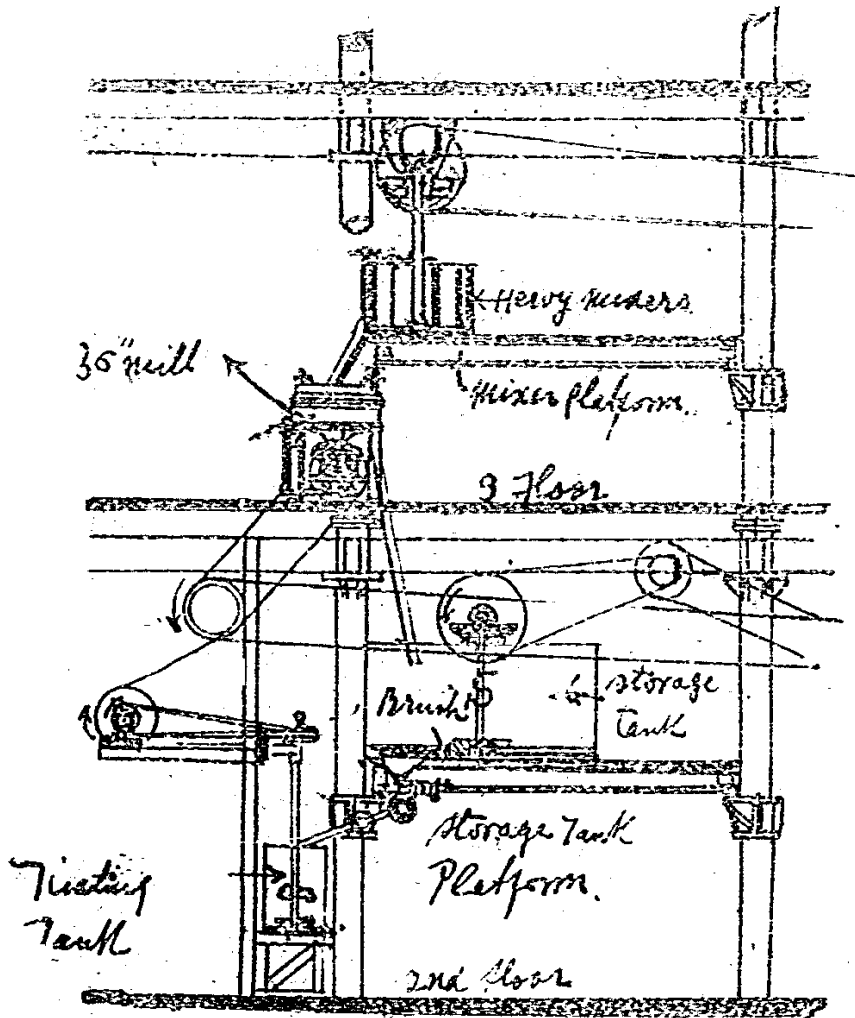 Heavy Mixers
36" mill
Mixer Platform.
3 Floor
Storage
Tank
Brush
Storage Tank
Platform.
Tinting
Tank
2nd floor